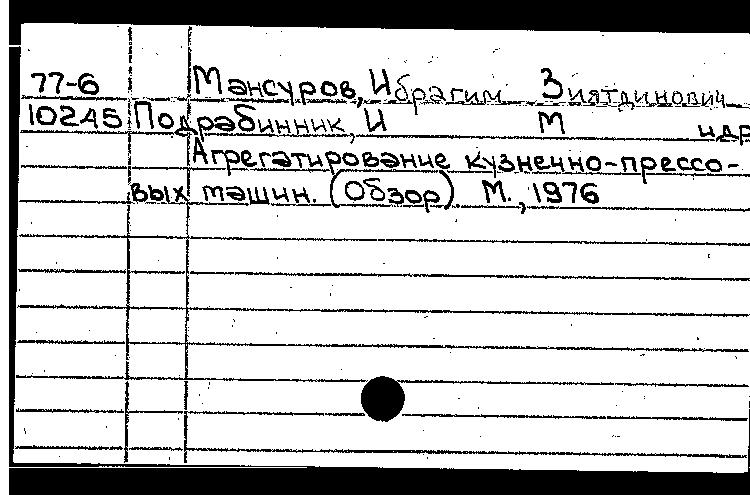 77-6 Мансуров, Ибрагим Зиятдинович
10245 Подрабинник, И М и др
Агрегатирование кузнечно-прессо-
вых машин. (Обзор) М., 1976